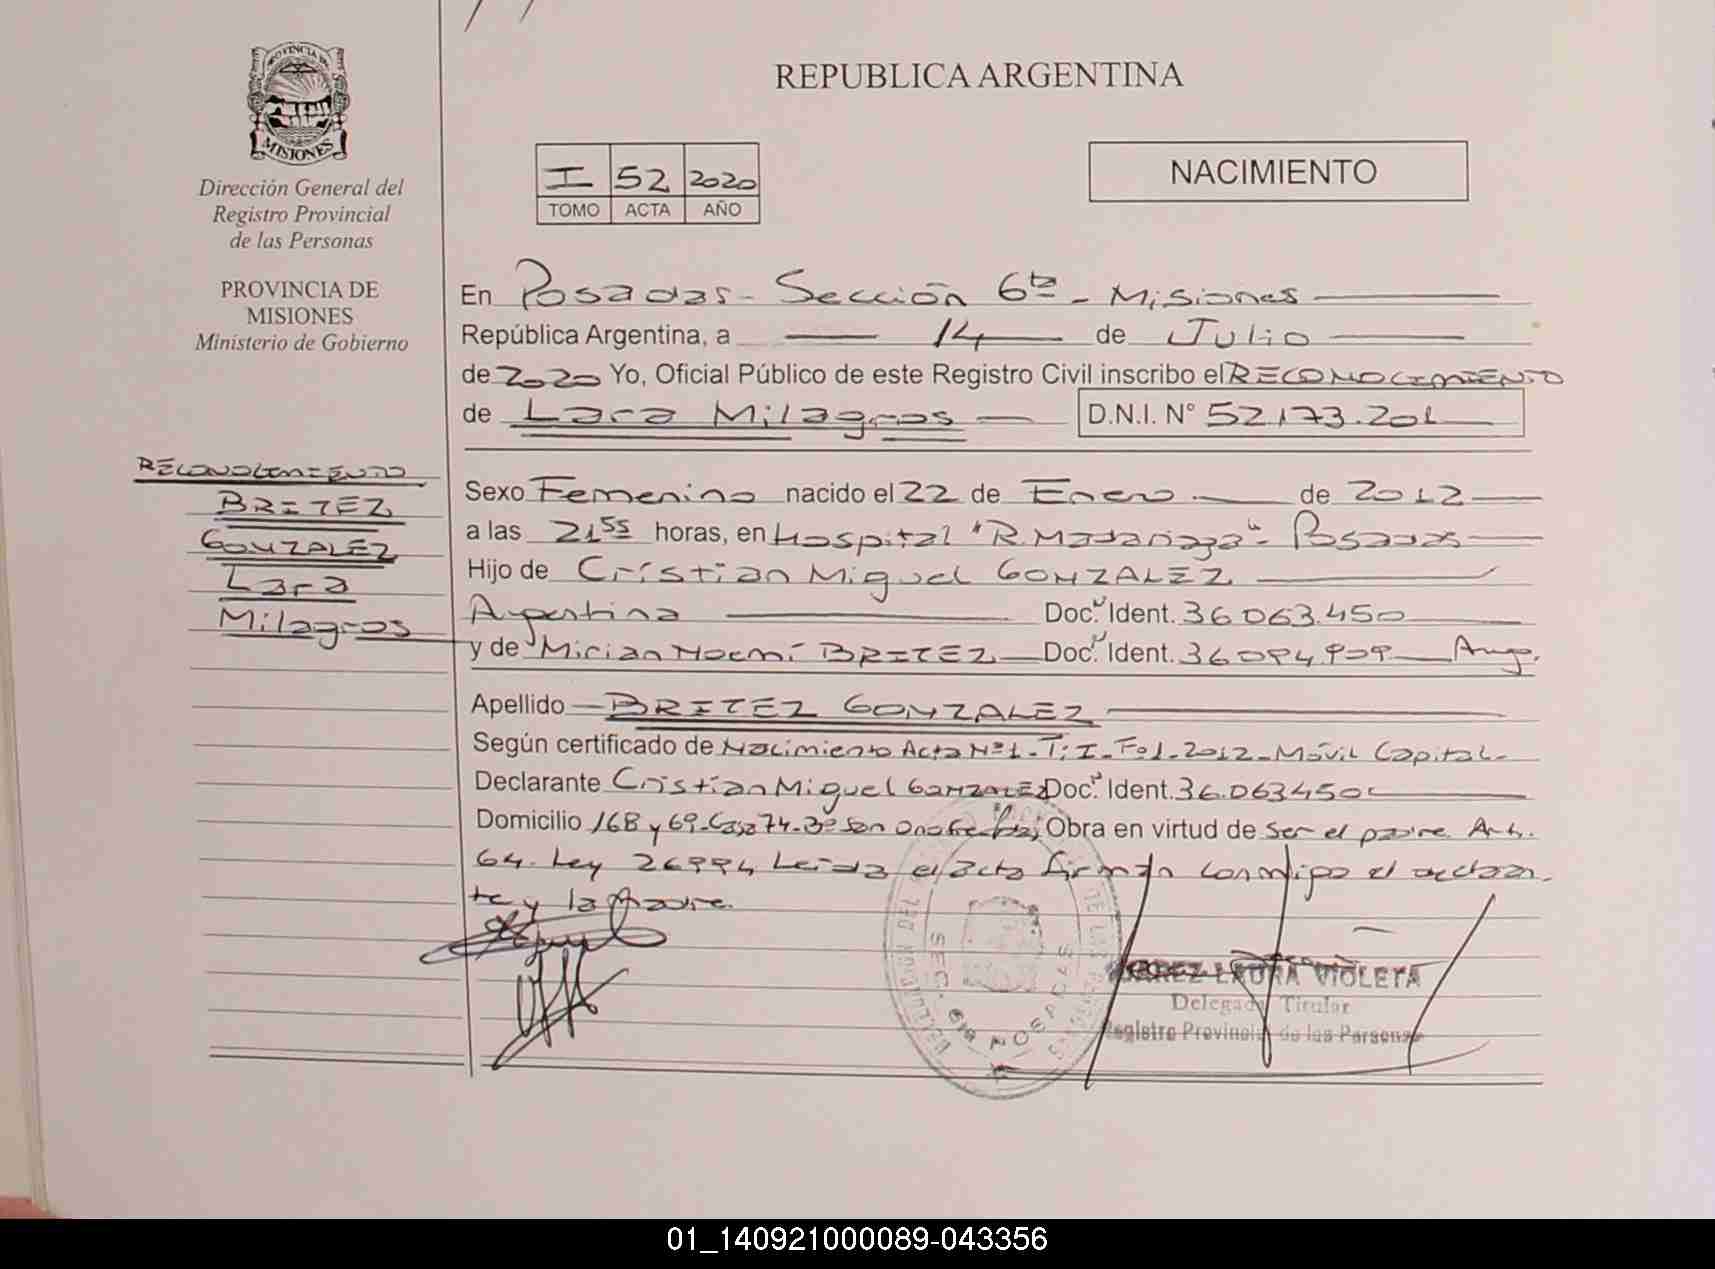 PROVINCIA DE
MISIONES
Dirección General del
Registro Provincial
de las Personas
PROVINCIA DE
MISIONES
Ministerio de Gobierno
REPUBLICA ARGENTINA
I 52 2020
TOMO ACTA AÑO
NACIMIENTO
En Posadas - Sección 6ta - Misiones
República Argentina, a 14 de Julio
de 2020 Yo, Oficial Público de este Registro Civil inscribo el RECONOCIMIENTO
de Lara Milagros D.N.I. N° 52.173.201
RECONOCIMIENTO
BRITEZ
GONZALEZ
Lara
Milagros
Sexo Femenino nacido el 22 de Enero de 2012
a las 21 55 horas, en Hospital "R. Madariaga" - Posadas
Hijo de Cristian Miguel GONZALEZ
Argentina Doc. Ident. 36.063.450
y de Mirian Noemí BRITEZ Doc. Ident. 36.094.909 Arg.
Apellido BRITEZ GONZALEZ
Según certificado de Nacimiento Acta Nº 1 - T: I - Fº 1 - 2012 - Móvil Capital -
Declarante Cristian Miguel GONZALEZ Doc. Ident. 36.063450
Domicilio 168 y 69 - Casa 74 - Bº San Onofre Obra en virtud de ser el padre Art.
64 - Ley 26994 Leída el acta firman conmigo el declaran
te y la Madre.
SEC. 6ta POSADAS
JUAREZ LAURA VIOLETA
Delegada Titular
Registro Provincial de las Personas
01_140921000089-043356